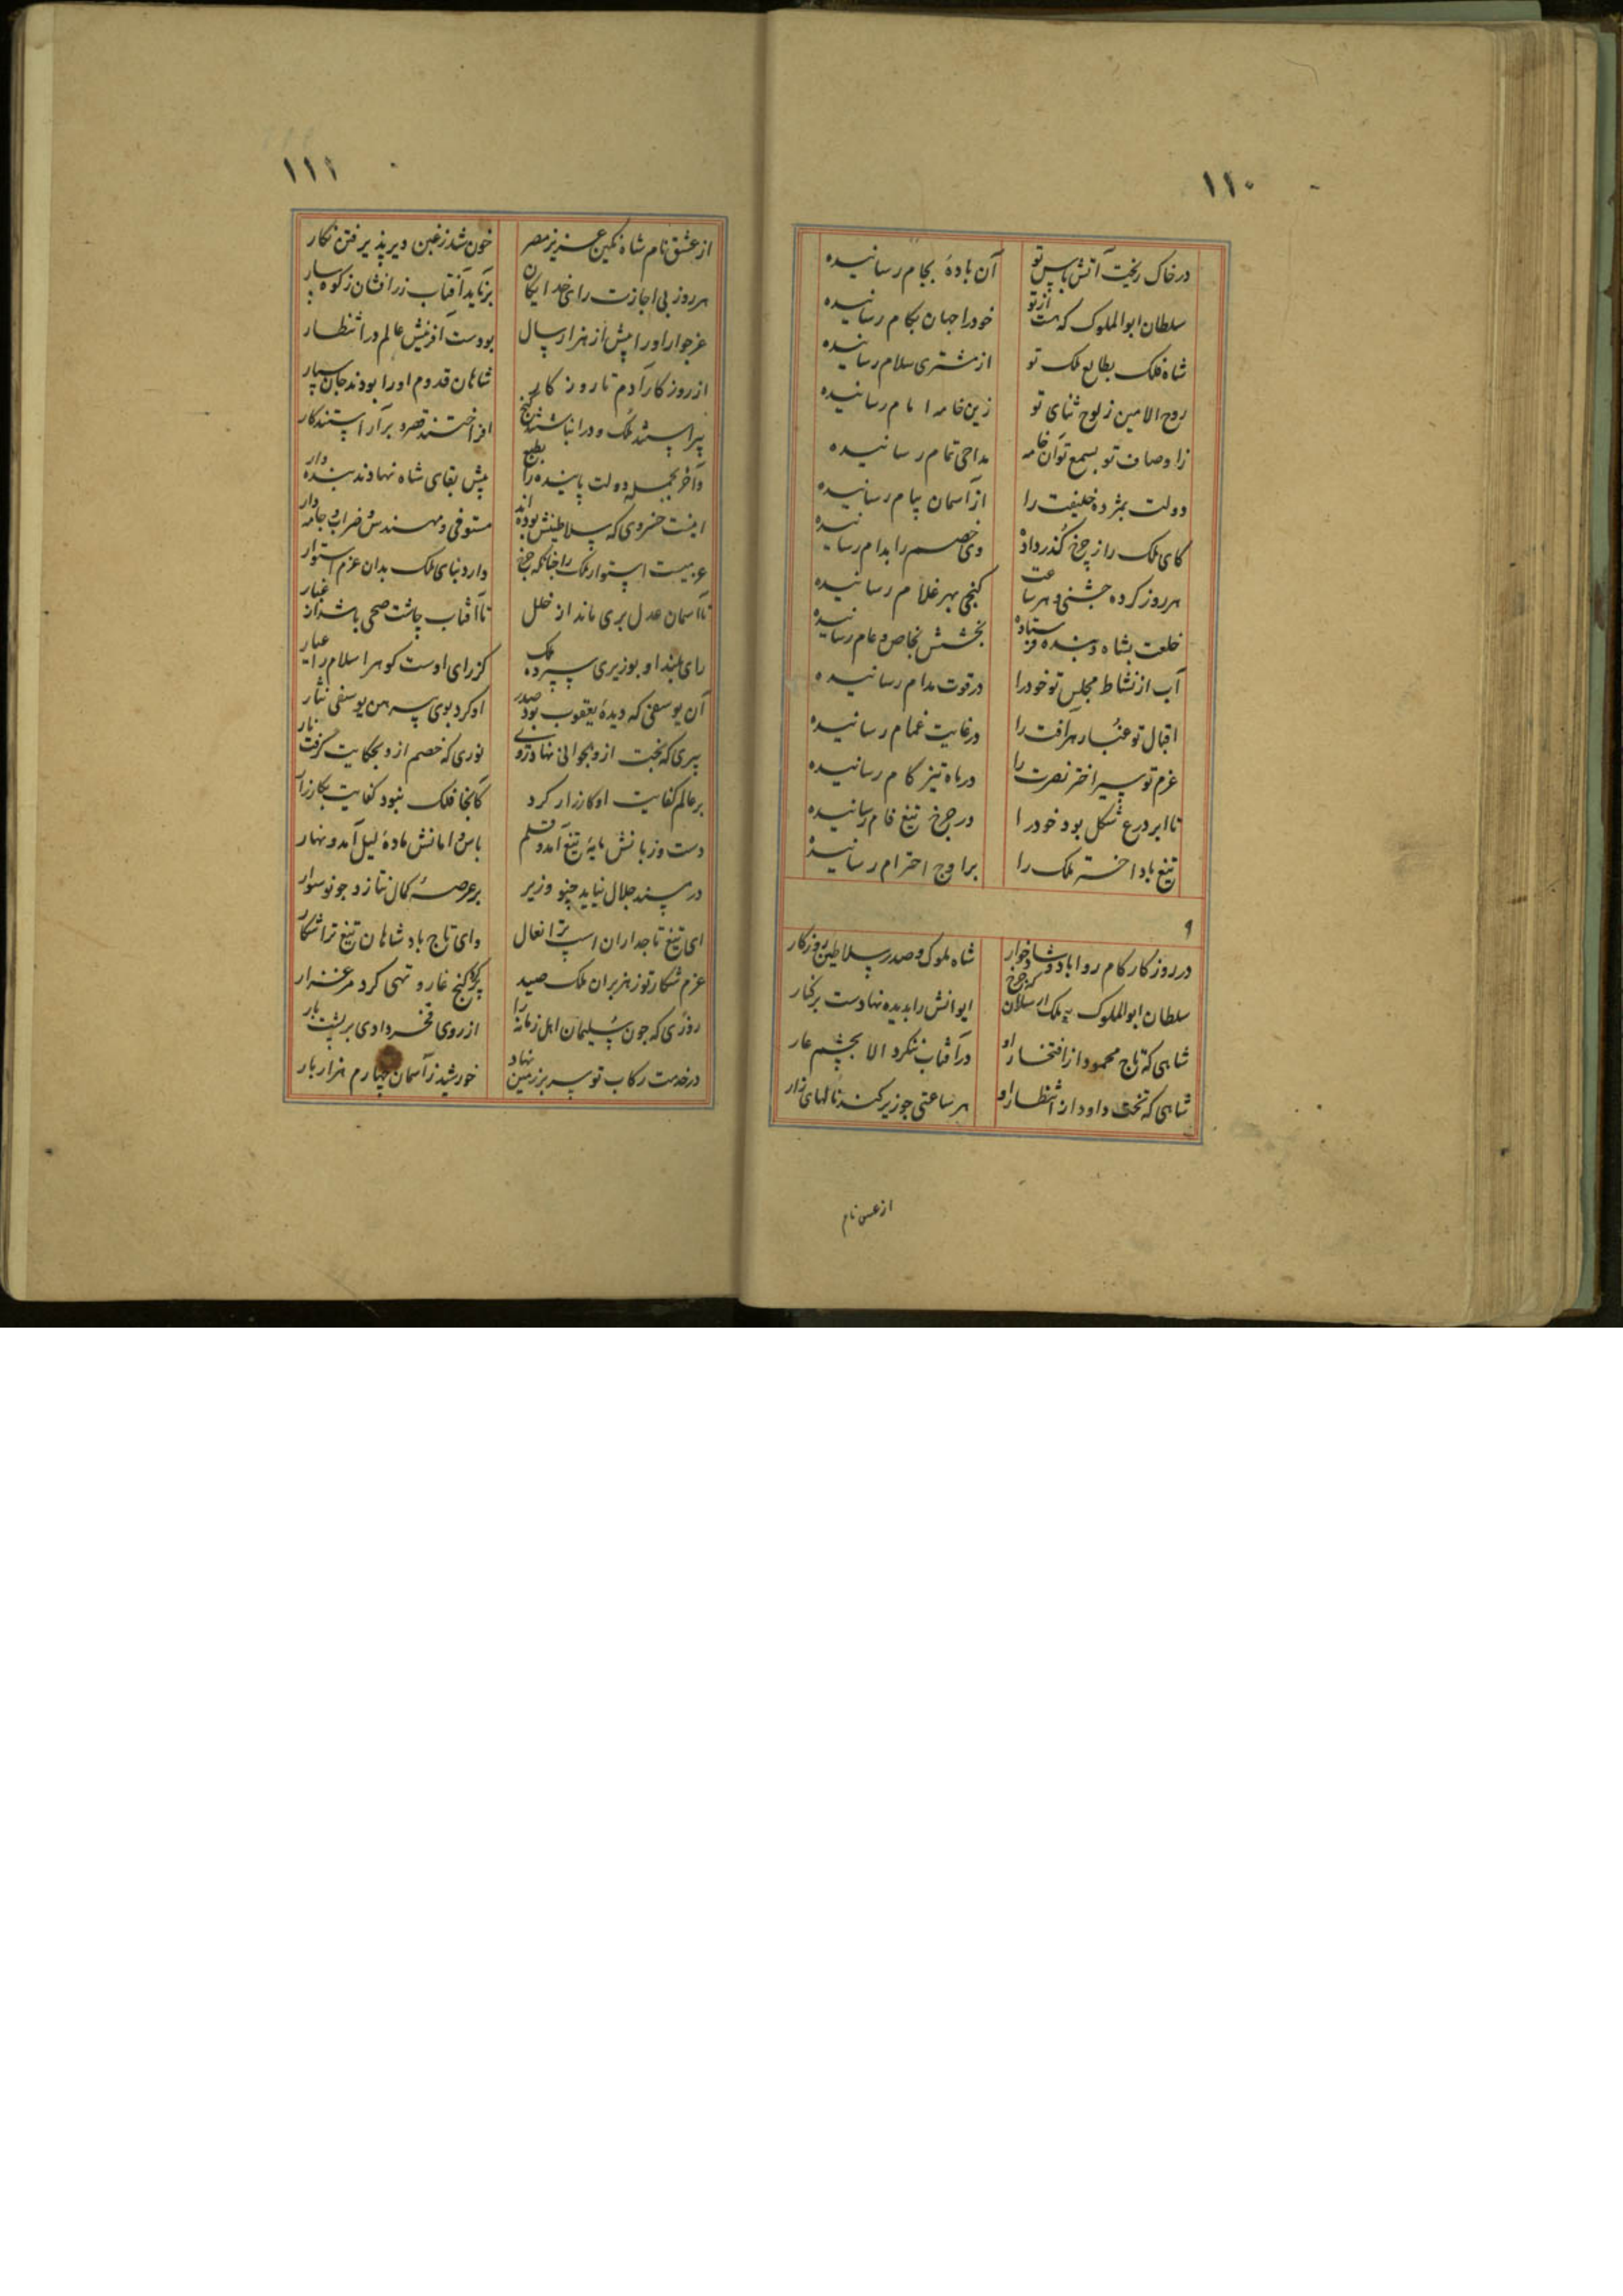 ۱۱۰
در خاک ریخت آتش باس تو آن بادهٔ بجام رسانیده
سلطان ابوالملوک که هست از تو خود را جهان بکام رسانیده
شاه فلک بطالع ملک تو از مشتری سلام رسانیده
روح الامین ز لوح ثنای تو زین خامه امام رسانیده
ز اوصاف تو بسمع تو آن خامه مداحی تمام رسانیده
دولت بمژده خلیفت را از آسمان پیام رسانیده
کای ملک را ز چرخ گذر داده وی خصم را بدام رسانیده
هر روز کرده جشنی و هر ساعت گنجی بهر غلام رسانیده
خلعت بشاه و بنده فرستاده بخشش بخاص و عام رسانیده
آب از نشاط مجلس تو خود را در قوت مدام رسانیده
اقبال تو غبار مرافت را در غایت غمام رسانیده
عزم تو سیر اختر نصرت را در ماه تیز کام رسانیده
تا ابر درع شکل بود خود را در چرخ تیغ فام رسانیده
تیغ باد اختر ملک را بر اوج احترام رسانیده
۹
در روزگار کام روا باد و شادخوار شاه ملوک و صدر سلاطین روزگار
سلطان ابوالملوک ملک ارسلان که چرخ ایوانش را بدیده نهادست بر کنار
شاهی که تاج محمود از افتخار او در آفتاب ننگرد الا بچشم عار
شاهی که تخت داود از انتظار او هر ساعتی چو زیر کند نالهای زار
از عشق نام
۱۱۱
از عشق نام شاه نگین عزیز مصر خون شد ز غبن دیر پذیرفتن نگار
هر روز بی اجازت رای خدایگان بر ناید آفتاب زرافشان ز کوهسار
عز جوار او را پیش از هزار سال بودست آفرینش عالم در انتظار
از روزگار آدم تا روز کار شاهان قدوم او را بودند جان سپار
پیراستند ملک و در انباشتند گنج افراختند قصر و بر آراستند کار
و آخر بجمله دولت پاینده را بطبع پیش بقای شاه نهادند بنده وار
اینست خسروی که سلاطینش بوده اند مستوفی و مهندس و ضراب و جامه دار
عزمیست استوار ملک را چنانکه چرخ دارد بنای ملک بدان عزم استوار
تا آسمان عدل بری ماند از خلل تا آفتاب چاشت ضحی باشد از غبار
رای بلند او بوزیری سپرده ملک کز رای اوست گوهر اسلام را عیار
آن یوسفی که دیدهٔ یعقوب بود صدر او کرد بوی پیرهن یوسفی نثار
پیری که بخت ازو بجوانی نهاد روی نوری که خصم ازو بحکایت گرفت نار
بر عالم کفایت او کارزار کرد کانجا فلک نبود کفایت بکارزار
دست و زبانش مایهٔ تیغ آمد و قلم باس و امانش مادهٔ لیل آمد و نهار
در مسند جلال نیاید چنو وزیر بر عرصهٔ کمال نتازد چو نو سوار
ای تیغ تاجداران اسب ترا نعال وای تاج پادشاهان تیغ ترا شکار
عزم شکار تو ز هزبران ملک صید پر کرد کنج غار و تهی کرد مرغزار
روزی که چون سلیمان اهل زمانه را از روی فخر دادی بر پشت بار
در خدمت رکاب تو سر بر زمین نهاد خورشید ز آسمان چهارم هزار بار